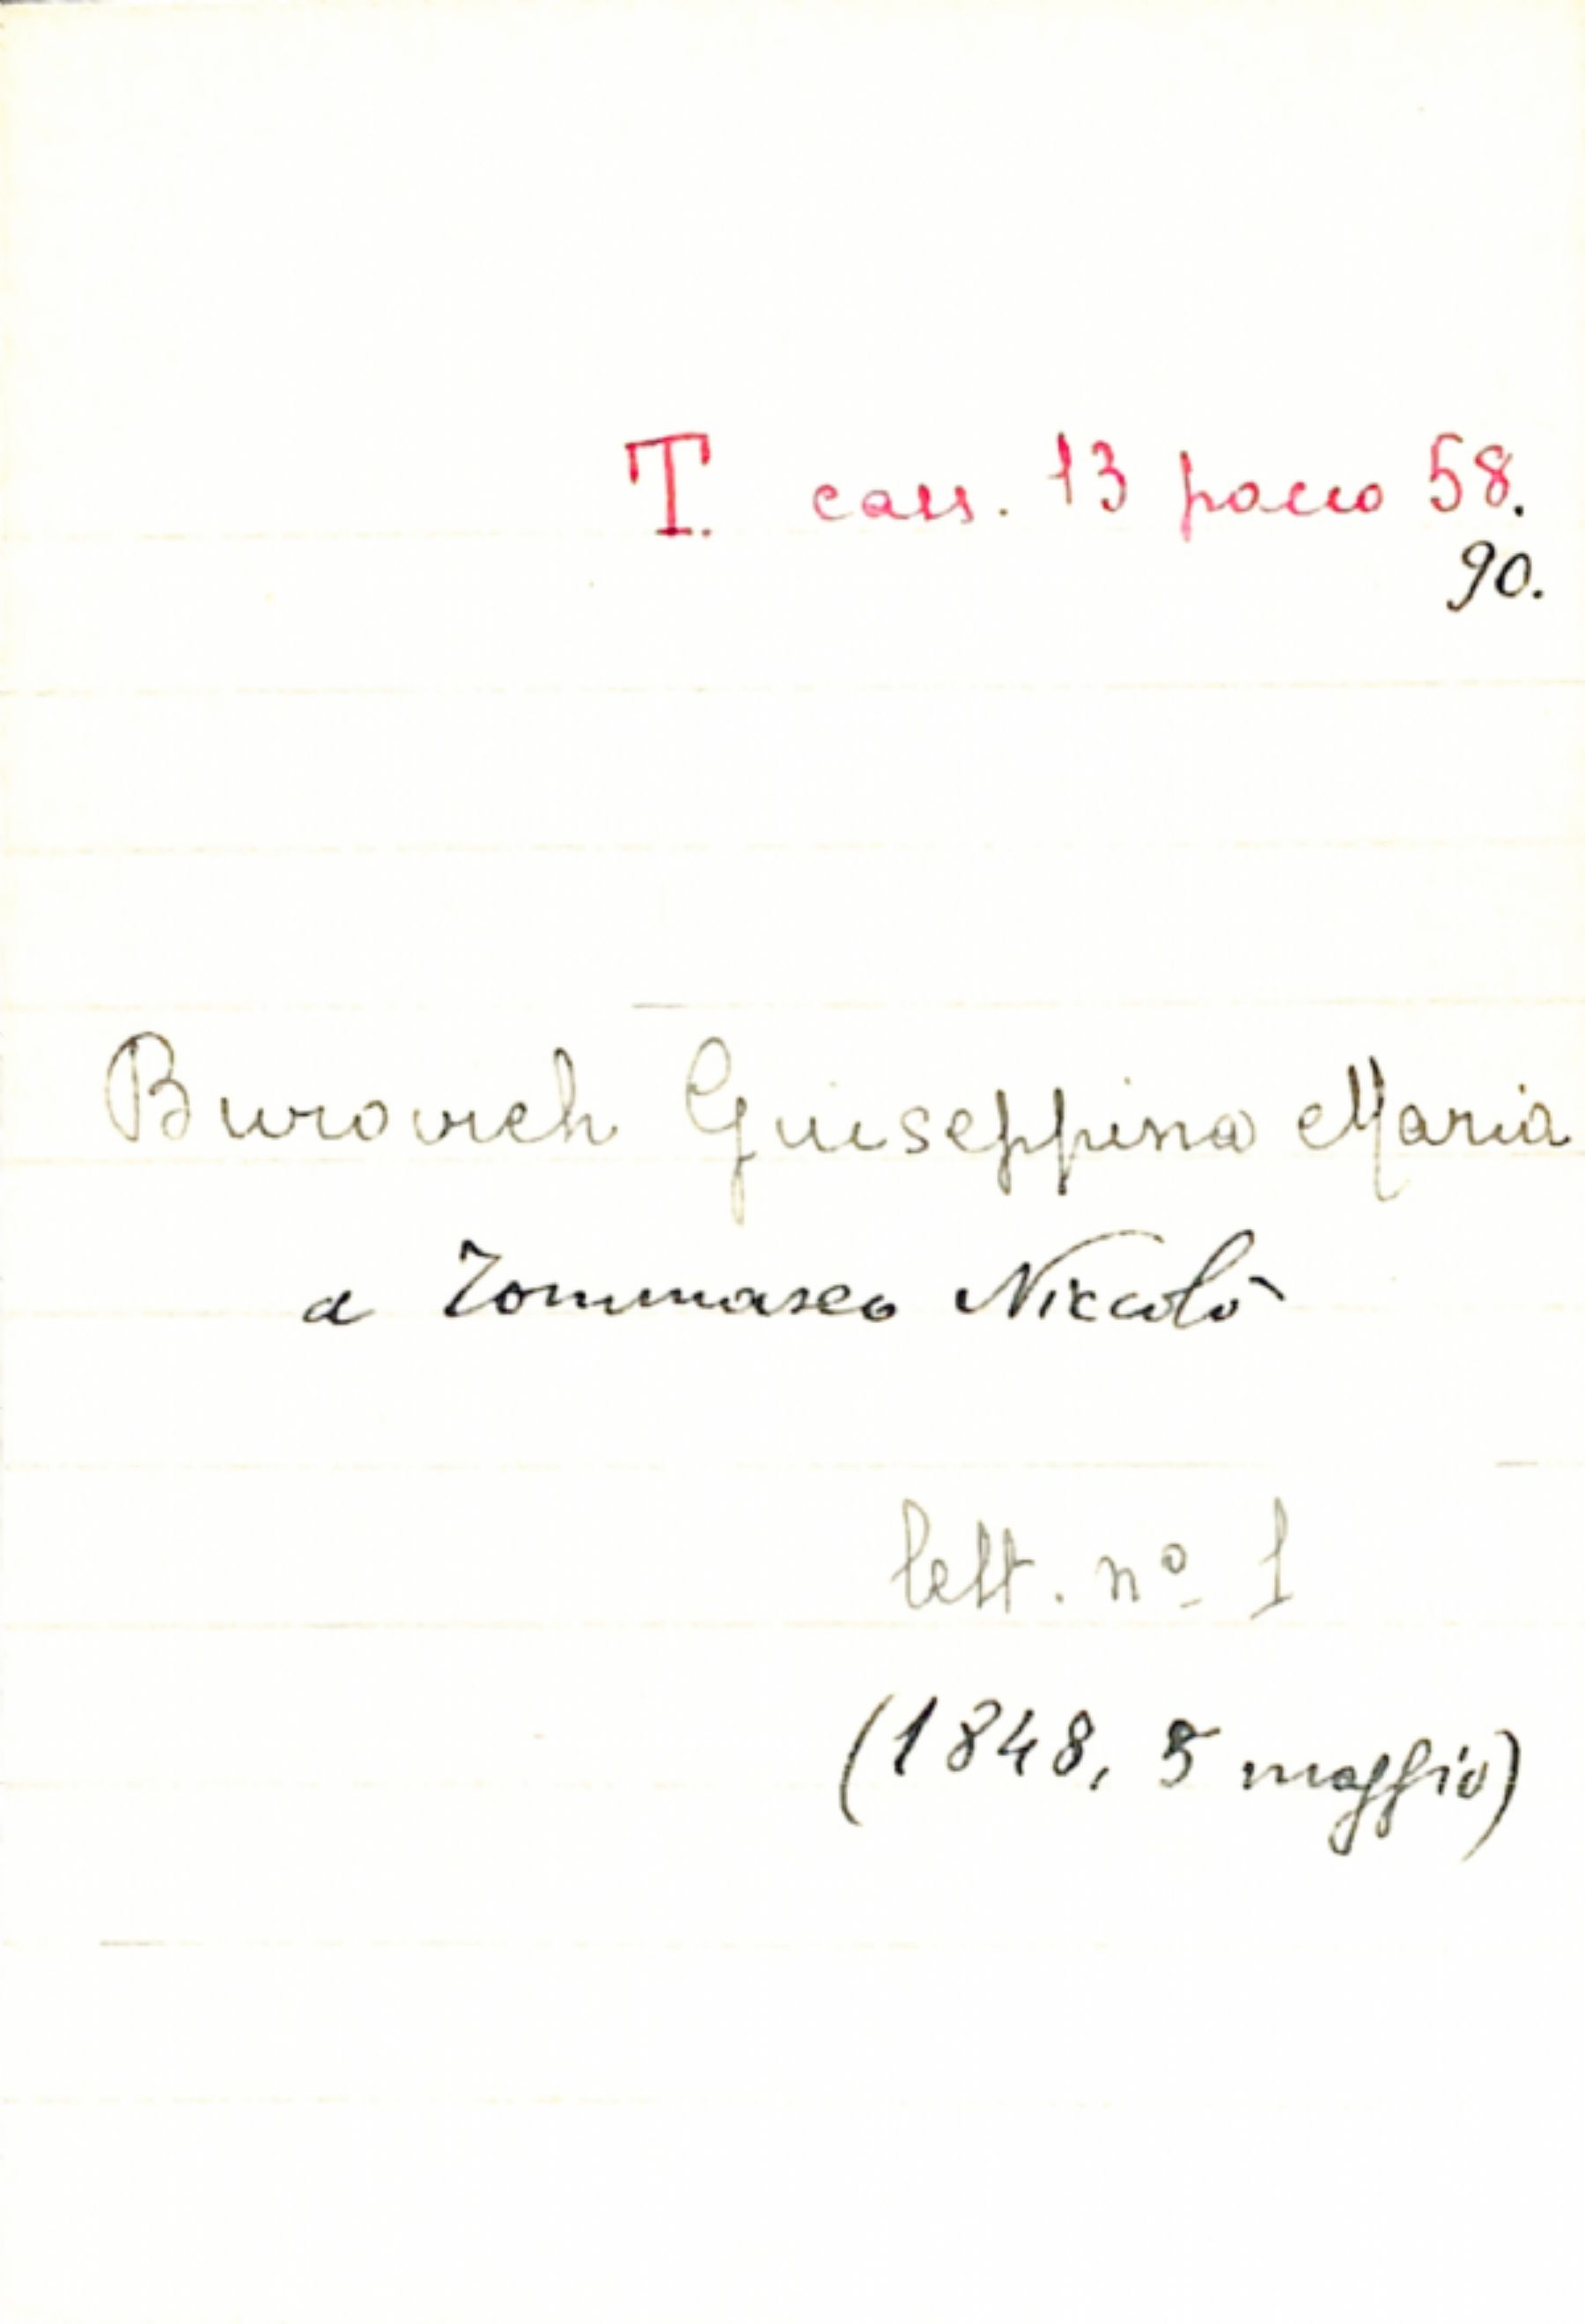 T. cass. 13 pacco 58.
90.
Burovich Giuseppina Maria
a Tommaseo Niccolò
lett. nº 1
(1848, 5 maggio)